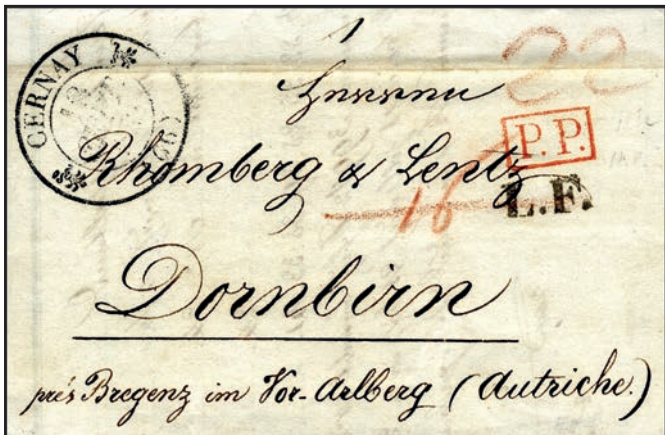 1
CERNAY (66)
22
Herren
P.P.
Rhomberg & Lentz
16
L.F.
Dornbirn
prés Bregenz im Vor-Arlberg (Autriche.)